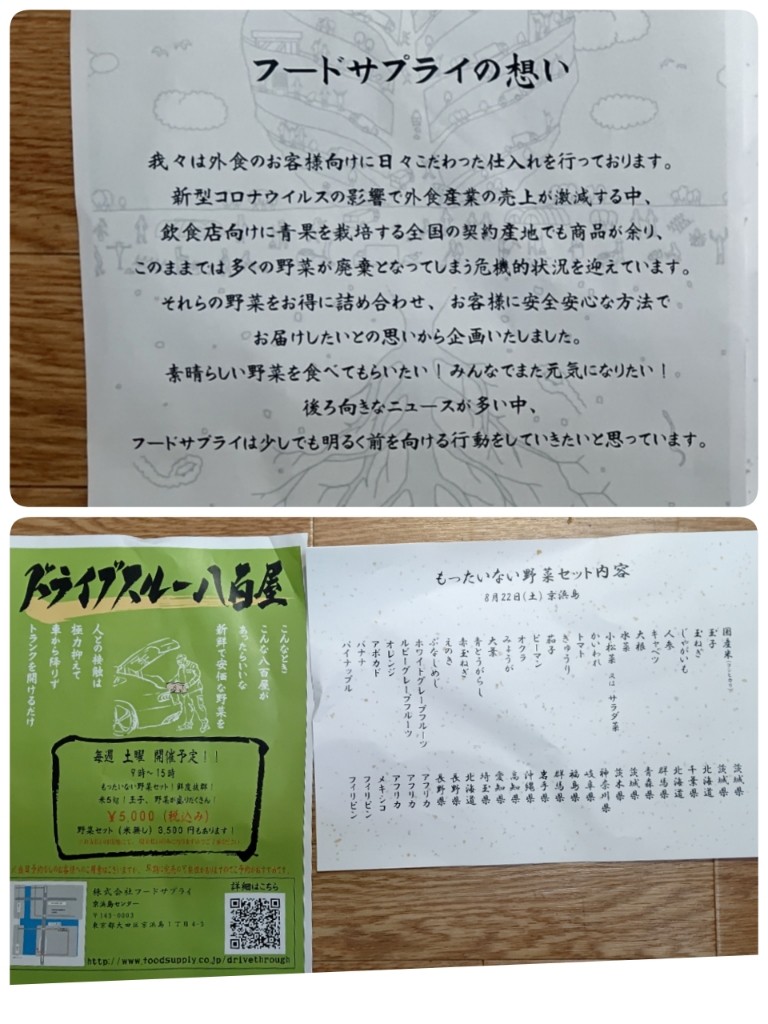 フードサプライの想い
我々は外食のお客様向けに日々こだわった仕入れを行っております。
新型コロナウイルスの影響で外食産業の売上が激減する中、
飲食店向けに青果を栽培する全国の契約産地でも商品が余り、
このままでは多くの野菜が廃棄となってしまう危機的状況を迎えています。
それらの野菜をお得に詰め合わせ、お客様に安全安心な方法で
お届けしたいとの思いから企画いたしました。
素晴らしい野菜を食べてもらいたい！みんなでまた元気になりたい！
後ろ向きなニュースが多い中、
フードサプライは少しでも明るく前を向ける行動をしていきたいと思っています。
ドライブスルー八百屋
こんなとき
こんな八百屋が
あったらいいな
新鮮で安価な野菜を
人との接触は
極力抑えて
車から降りず
トランクを開けるだけ
毎週 土曜 開催予定！！
9時〜15時
もったいない野菜セット！鮮度抜群！
米5kg！玉子、野菜が盛りだくさん！
￥5,000（税込み）
野菜セット（米無し）3,500円もあります！
株式会社フードサプライ
京浜島センター
〒143-0003
東京都大田区京浜島1丁目4-3
詳細はこちら
http://www.foodsupply.co.jp/drivethrough
もったいない野菜セット内容
8月22日(土) 京浜島
国産米
玉子 茨城県
玉ねぎ
じゃがいも 北海道
人参
キャベツ 群馬県
大根 青森県
水菜 茨城県
小松菜 又は サラダ菜
かいわれ 神奈川県
トマト 岐阜県
きゅうり 福島県
茄子 群馬県
ピーマン 岩手県
オクラ 沖縄県
みょうが 高知県
大葉 愛知県
青とうがらし 埼玉県
赤玉ねぎ 北海道
えのき 長野県
ぶなしめじ 長野県
ホワイトグレープフルーツ アフリカ
ルビーグレープフルーツ アフリカ
オレンジ アフリカ
アボカド メキシコ
バナナ フィリピン
パイナップル フィリピン